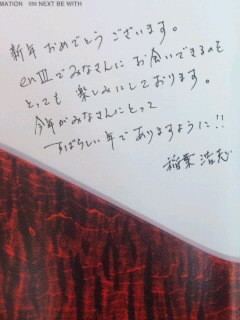 MATION IIII NEXT BE WITH
新年 おめでとう ございます。
enⅢでみなさんに お会いできるのも
とっても 楽しみにしております。
今年がみなさんにとって
すばらしい年でありますように!!
稲葉浩志